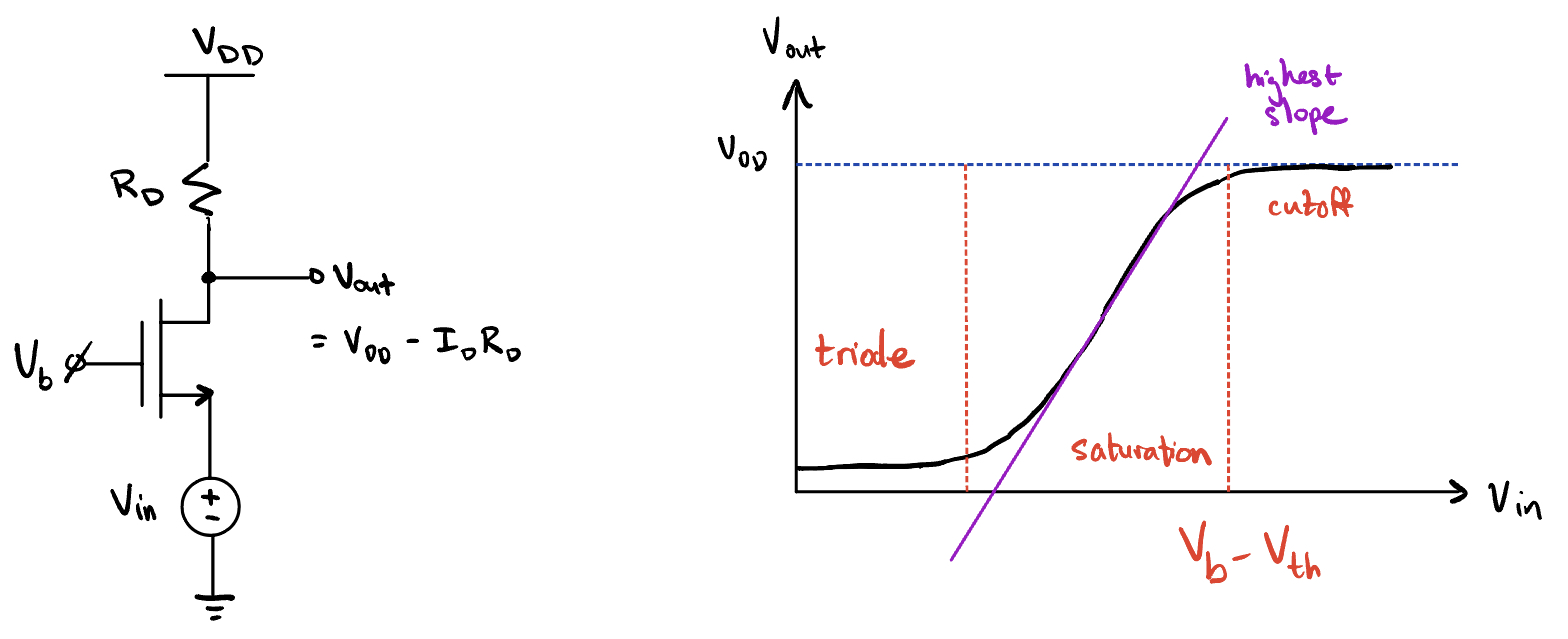 V_DD
R_D
V_out
= V_DD - I_D R_D
V_b
V_in
+
-
V_out
highest
slope
V_DD
cutoff
triode
saturation
V_in
V_b - V_th